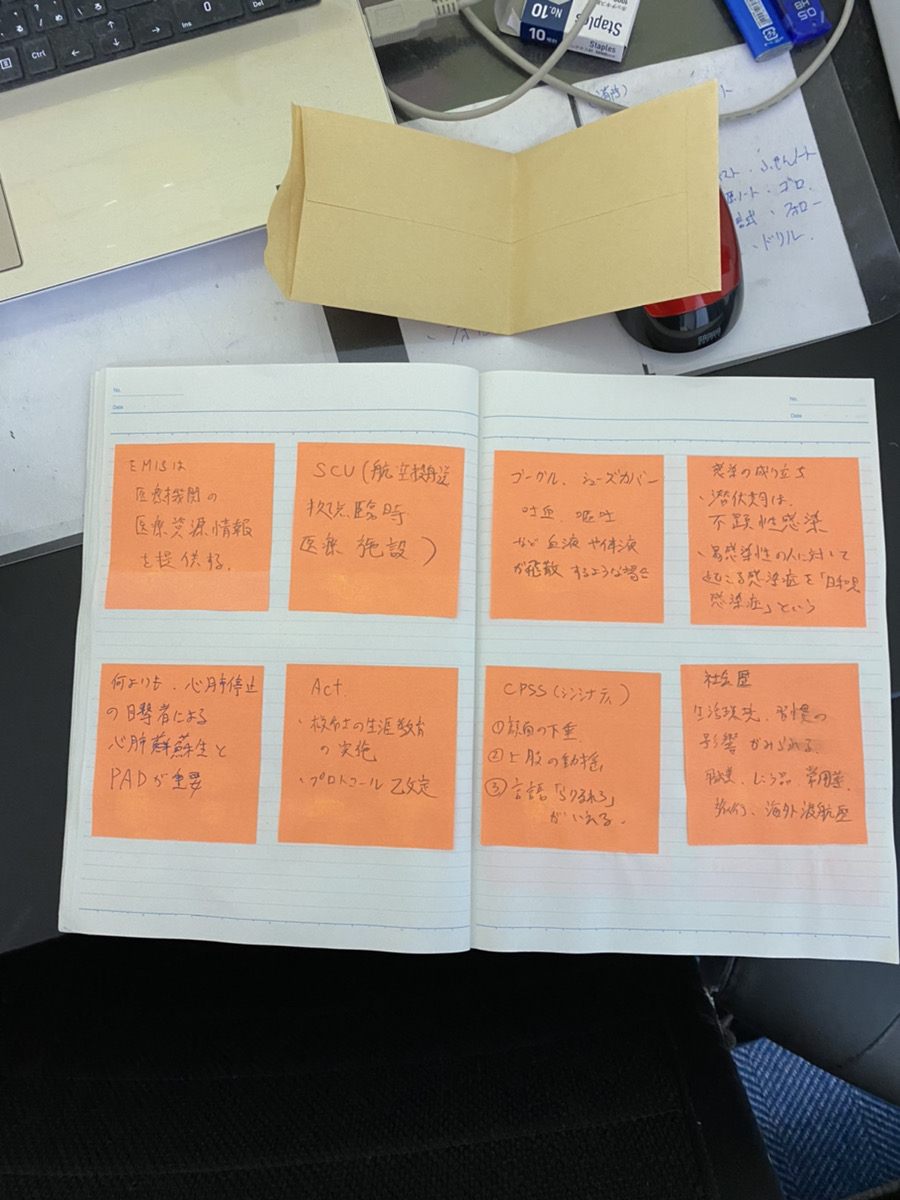 Ctrl
Alt
Ins
Del
No.10
10
Staples
Staples
HB
05
ふせんノート
ゴロ
フォロー
・ドリル
No.
Date
No.
Date
EMISは
医療機関の
医療資源情報
を提供する。
SCU(航空搬送
拠点臨時
医療施設)
ゴーグル、シューズカバー
吐血、嘔吐
など血液や体液
が飛散するような場合
感染の成り立ち
・潜伏期は、
不顕性感染
・易感染性の人に対して
起こる感染症を「日和見
感染症」という
何よりも、心肺停止
の目撃者による
心肺蘇生と
PADが重要
Act.
・救命士の生涯教育
の実施
・プロトコール改定
CPSS(シンシナティ)
①顔面の下垂
②上肢の動揺
③言語「らりるれろ」
がいえる。
社会歴
生活環境、習慣の
影響がみられる
職業、し好品、常用薬、
旅行、海外渡航歴